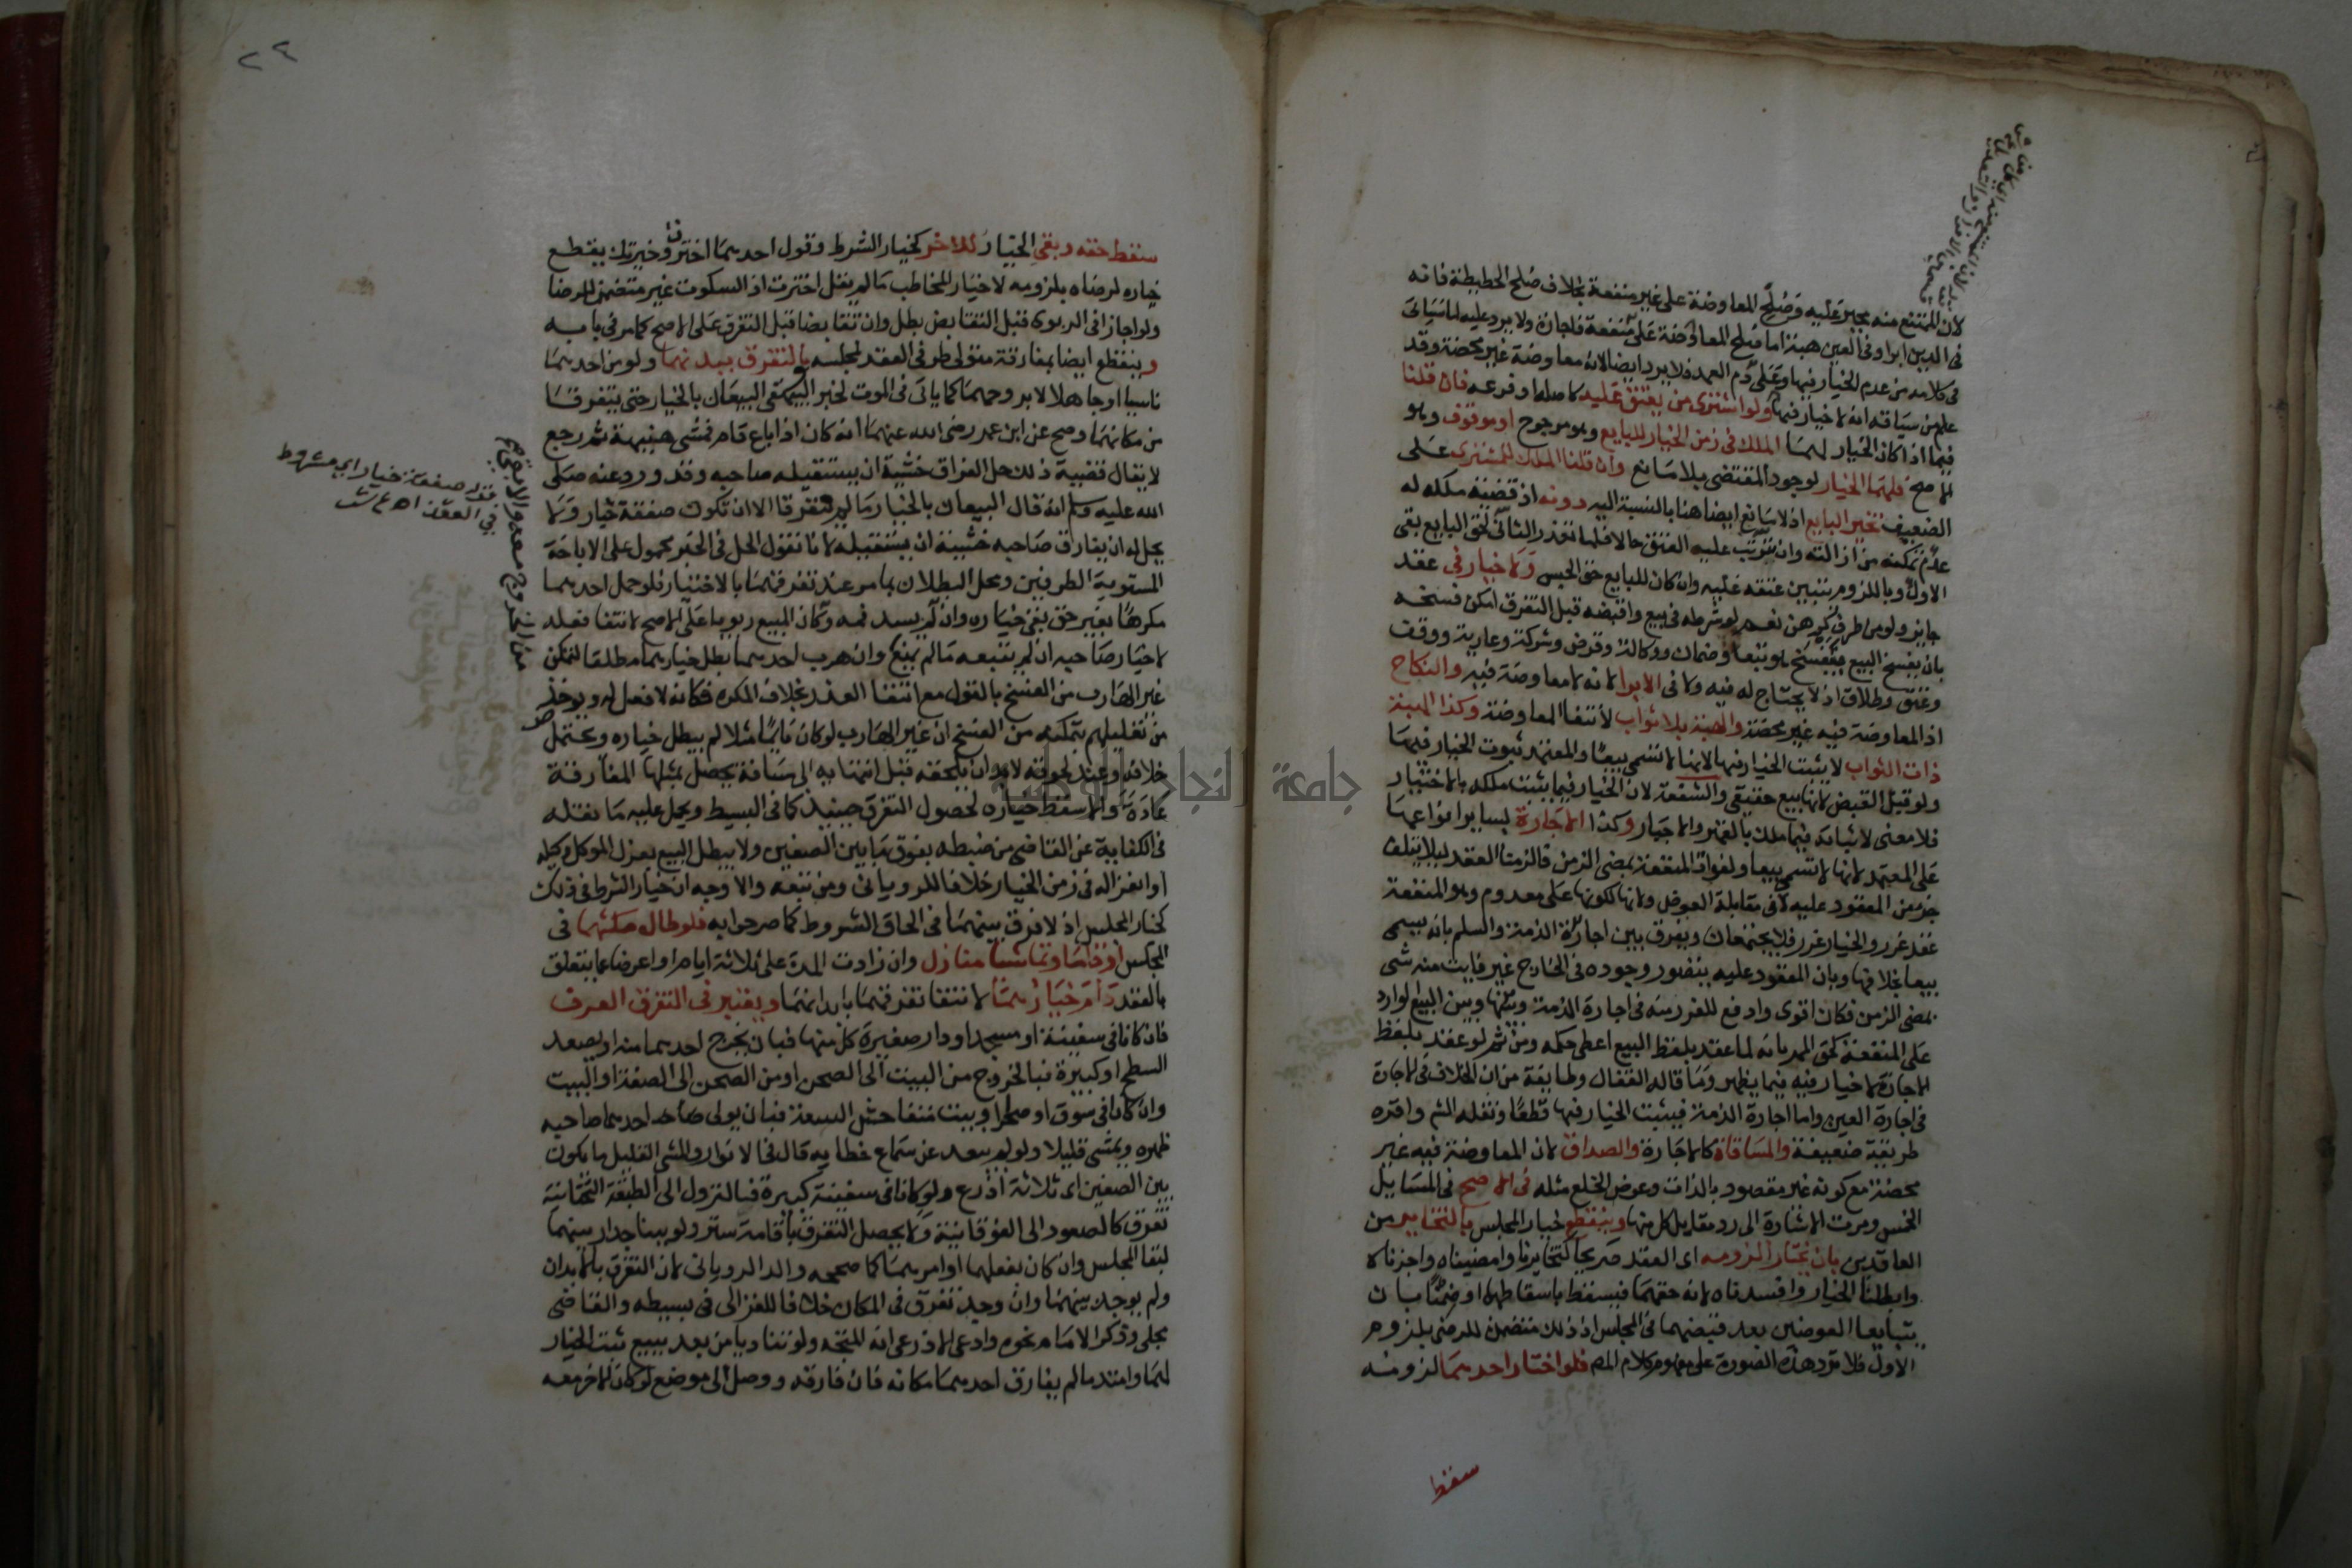 لان الممتنع منه يجبر عليه وصلح المعاوضة على غير منفعة بخلاف صلح الحطيطة فانه
في الدين ابرا وفي العين هبة اما صلح المعاوضة على منفعة فاجارة ولا يرد عليه لما سيأتي
في كلامه من عدم الخيار فيها وعلى دم العمد فلا يرد ايضا لانه معاوضة غير محضة وقد
علم من سياقه انه لا خيار فيها ولو اشترى من يعتق عليه كاصله او فرعه فان قلنا
فيما اذا كان الخيار لهما الملك في زمن الخيار للبايع وهو مرجوح او موقوف وهو
الاصح فلهما الخيار لوجود المقتضى بلا مانع وان قلنا الملك للمشترى على
الضعيف تخير البايع اذ لا مانع ايضا هنا بالنسبة اليه دونه اذ قضية ملكه له
عدم تمكنه من ازالته وان يترتب عليه العتق حالا فلما تعذر الثاني لحق البايع بقى
الاول وباللزوم يتبين عتقه عليه وان كان للبايع حق الحبس ولا خيار في عقد
جايز ولو من طرف كرهن نعم لو شرطه في بيع واقبضه قبل التفرق امكن فسخه
بان يفسخ البيع فينفسخ هو تبعا وضمان ووكالة وقرض وشركة وعارية ووقف
وعتق وطلاق اذ لا يحتاج له فيه ولا في الابرا لانه لا معاوضة فيه والنكاح
اذ المعاوضة فيه غير محضة والهبة بلا ثواب لانتفا المعاوضة وكذا الهبة
ذات الثواب لا يثبت الخيار فيها لانها لا تسمى بيعا والمعتمد ثبوت الخيار فيها
ولو قبل القبض لانها بيع حقيقي والشفعة لان الخيار فيما يثبت ملكه بالاختيار
فلا معنى لاثباته فيما ملك بالقهر والاجبار وكذا الاجارة بساير انواعها
على المعتمد لانها لا تسمى بيعا ولفوات المنفعة بمضى الزمن فالزمنا العقد ليلا يتلف
جزء من المعقود عليه لا في مقابلة العوض ولانها لكونها على معدوم وهو المنفعة
عقد غرر والخيار غرر فلا يجتمعان ويفرق بين اجارة الذمة والسلم بانه يسمى
بيعا بخلافها وبان المعقود عليه يتصور وجوده في الخارج غير فايت منه شى
بمضى الزمن فكان اقوى وادفع للغرر منه في اجارة الذمة وبينها وبين البيع لوارد
على المنفعة كحق الممر بانه لما عقد بلفظ البيع اعطى حكمه ومن ثم لو عقد بلفظ
الاجارة لا خيار فيه فيما يظهر وما قاله القفال وطايفة من ان الخلاف في الاجارة
في اجارة العين واما اجارة الذمة فيثبت الخيار فيها قطعا ونقله الشم واقره
طريقة ضعيفة والمساقاة كالاجارة والصداق لان المعاوضة فيه غير
محضة مع كونه غير مقصود بالذات وعوض الخلع مثله في الاصح في المسايل
الخمس ومرت الاشارة الى رد مقابل كل منها وينقطع خيار المجلس بالتخاير من
العاقدين بان يختارا لزومه اى العقد صريحا كتخايرنا وامضيناه واجزناه
وابطلنا الخيار وافسدناه لانه حقهما فيسقط باسقاطهما او ضمنا بان
يتبايعا العوضين بعد قبضهما في المجلس اذ ذلك متضمن للرضى بلزوم
الاول فلا ترد هذه الصورة على مفهوم كلام المص فلو اختار احدهما لزومه
سقط
٢٢
سقط حقه وبقى الخيار للاخر كخيار الشرط وقول احدهما اخترت وخيرتك يقطع
خياره لرضاه بلزومه لا خيار المخاطب ما لم يقل اخترت اذ السكوت غير متضمن للرضا
ولو اجازا في الربوى قبل التقابض بطل وان تقابضا قبل التفرق على الاصح كما مر في بابه
وينقطع ايضا بمفارقة متولى طرفى العقد لمجلسه بالتفرق ببدنهما ولو من احدهما
ناسيا او جاهلا لا بروحهما كما ياتى في الموت لخبر البيهقى البيعان بالخيار حتى يتفرقا
من مكانهما وصح عن ابن عمر رضى الله عنهما انه كان اذا باع قام فمشى هنيهة ثم رجع
لا يقال قضية ذلك حل الفراق خشية ان يستقيله صاحبه وقد ورد عنه صلى
الله عليه وسلم انه قال البيعان بالخيار ما لم يتفرقا الا ان تكون صفقة خيار ولا
يحل له ان يفارق صاحبه خشية ان يستقيله لانا نقول الحل في الخبر محمول على الاباحة
المستوية الطرفين ومحل البطلان بما مر عند تفرقهما بالاختيار فلو حمل احدهما
مكرها بغير حق بقى خياره وان لم يسد فمه وكان المبيع ربويا على الاصح لانتفا فعله
لا خيار صاحبه ان لم يتبعه ما لم يمنع وان هرب احدهما بطل خيارهما مطلقا لتمكن
غير الهارب من الفسخ بالقول مع انتفا العذر بخلاف المكره فكانه لا فعل له ويوخذ
من تعليلهم بتمكنه من الفسخ ان غير الهارب لو كان نايما مثلا لم يبطل خياره ويحتمل
خلافه وعند لحوقه لا بد ان يلحقه قبل انتهايه الى مسافة يحصل بمثلها المفارقة
عادة والا سقط خياره لحصول التفرق حينيذ كما في البسيط ويحمل عليه ما نقله
في الكفاية عن القاضى من ضبطه بفوق ما بين الصفين ولا يبطل البيع بعزل الموكل وكيله
او انعزاله في زمن الخيار خلافا للرويانى ومن تبعه والاوجه ان خيار الشرط في ذلك
كخيار المجلس اذ لا فرق بينهما في الحاق الشروط كما صرحوا به فلو طال مكثهما في
المجلس او قاما وتماشيا منازل وان زادت المدة على ثلاثة ايام او اعرضا عما يتعلق
بالعقد دام خيارهما لانتفا تفرقهما بابدانهما ويعتبر في التفرق العرف
فان كانا في سفينة او مسجد او دار صغيرة كل منها فبان يخرج احدهما منه او يصعد
السطح او كبيرة فبالخروج من البيت الى الصحن او من الصحن الى الصفة او البيت
وان كانا في سوق او صحرا وبيت متفاحش السعة فبان يولى احدهما صاحبه
ظهره ويمشى قليلا ولو لم يبعد عن سماع خطابه قال في الانوار والمشى القليل ما يكون
بين الصفين اى ثلاثة اذرع ولو كانا في سفينة كبيرة فالنزول الى الطبقة التحتانية
تفرق كالصعود الى الفوقانية ولا يحصل التفرق باقامة ستر ولو ببنا جدار بينهما
لبقا المجلس وان كان بفعلهما او امرهما كما صححه والد الرويانى لان التفرق بالابدان
ولم يوجد بينهما وان وجد تفرق في المكان خلافا للغزالى في بسيطه والقاضى
مجلى وذكر الامام نحوه وادعى الاذرعى انه المتجه ولو تناديا من بعد ببيع ثبت الخيار
لهما وامتد ما لم يفارق احدهما مكانه فان فارقه ووصل الى موضع لو كان الاخر معه
قوله صفقة خيار اى مشروط
في العقد اه ع ش
جامعة النجاح الوطنية